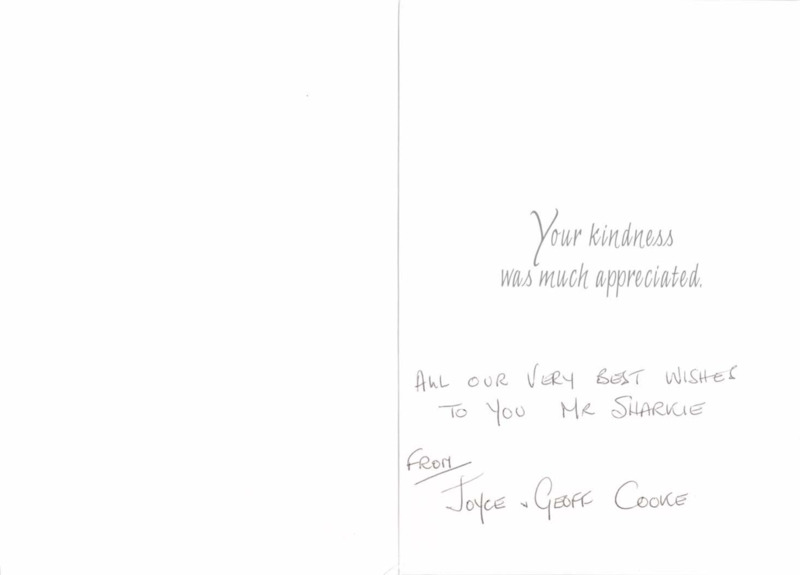 Your kindness
was much appreciated.
ALL OUR VERY BEST WISHES
TO YOU MR SHARKIE
FROM
JOYCE & GEOFF COOKE